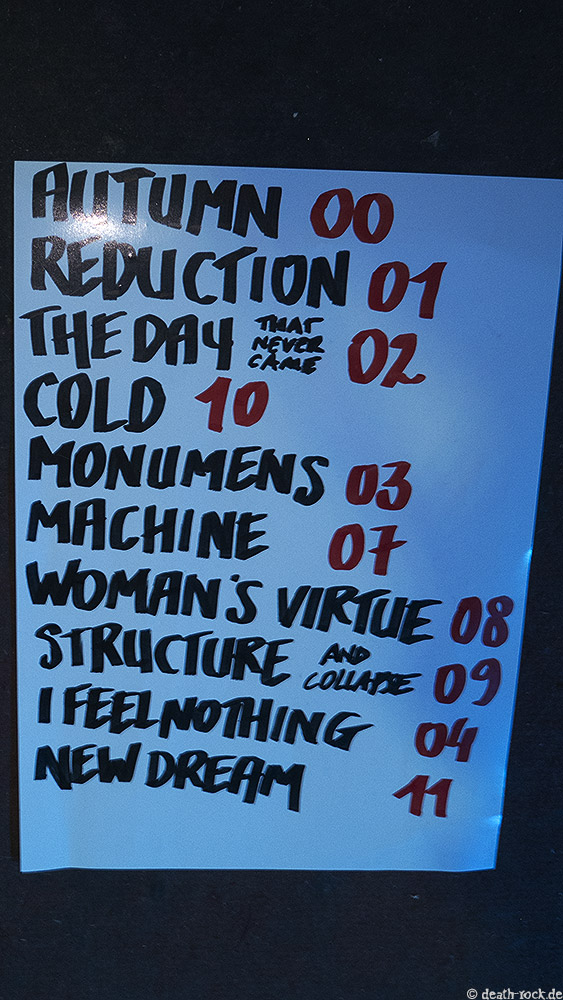 AUTUMN 00
REDUCTION 01
THE DAY THAT NEVER CAME 02
COLD 10
MONUMENS 03
MACHINE 07
WOMAN'S VIRTUE 08
STRUCTURE AND COLLAPSE 09
I FEEL NOTHING 04
NEW DREAM 11
© death-rock.de